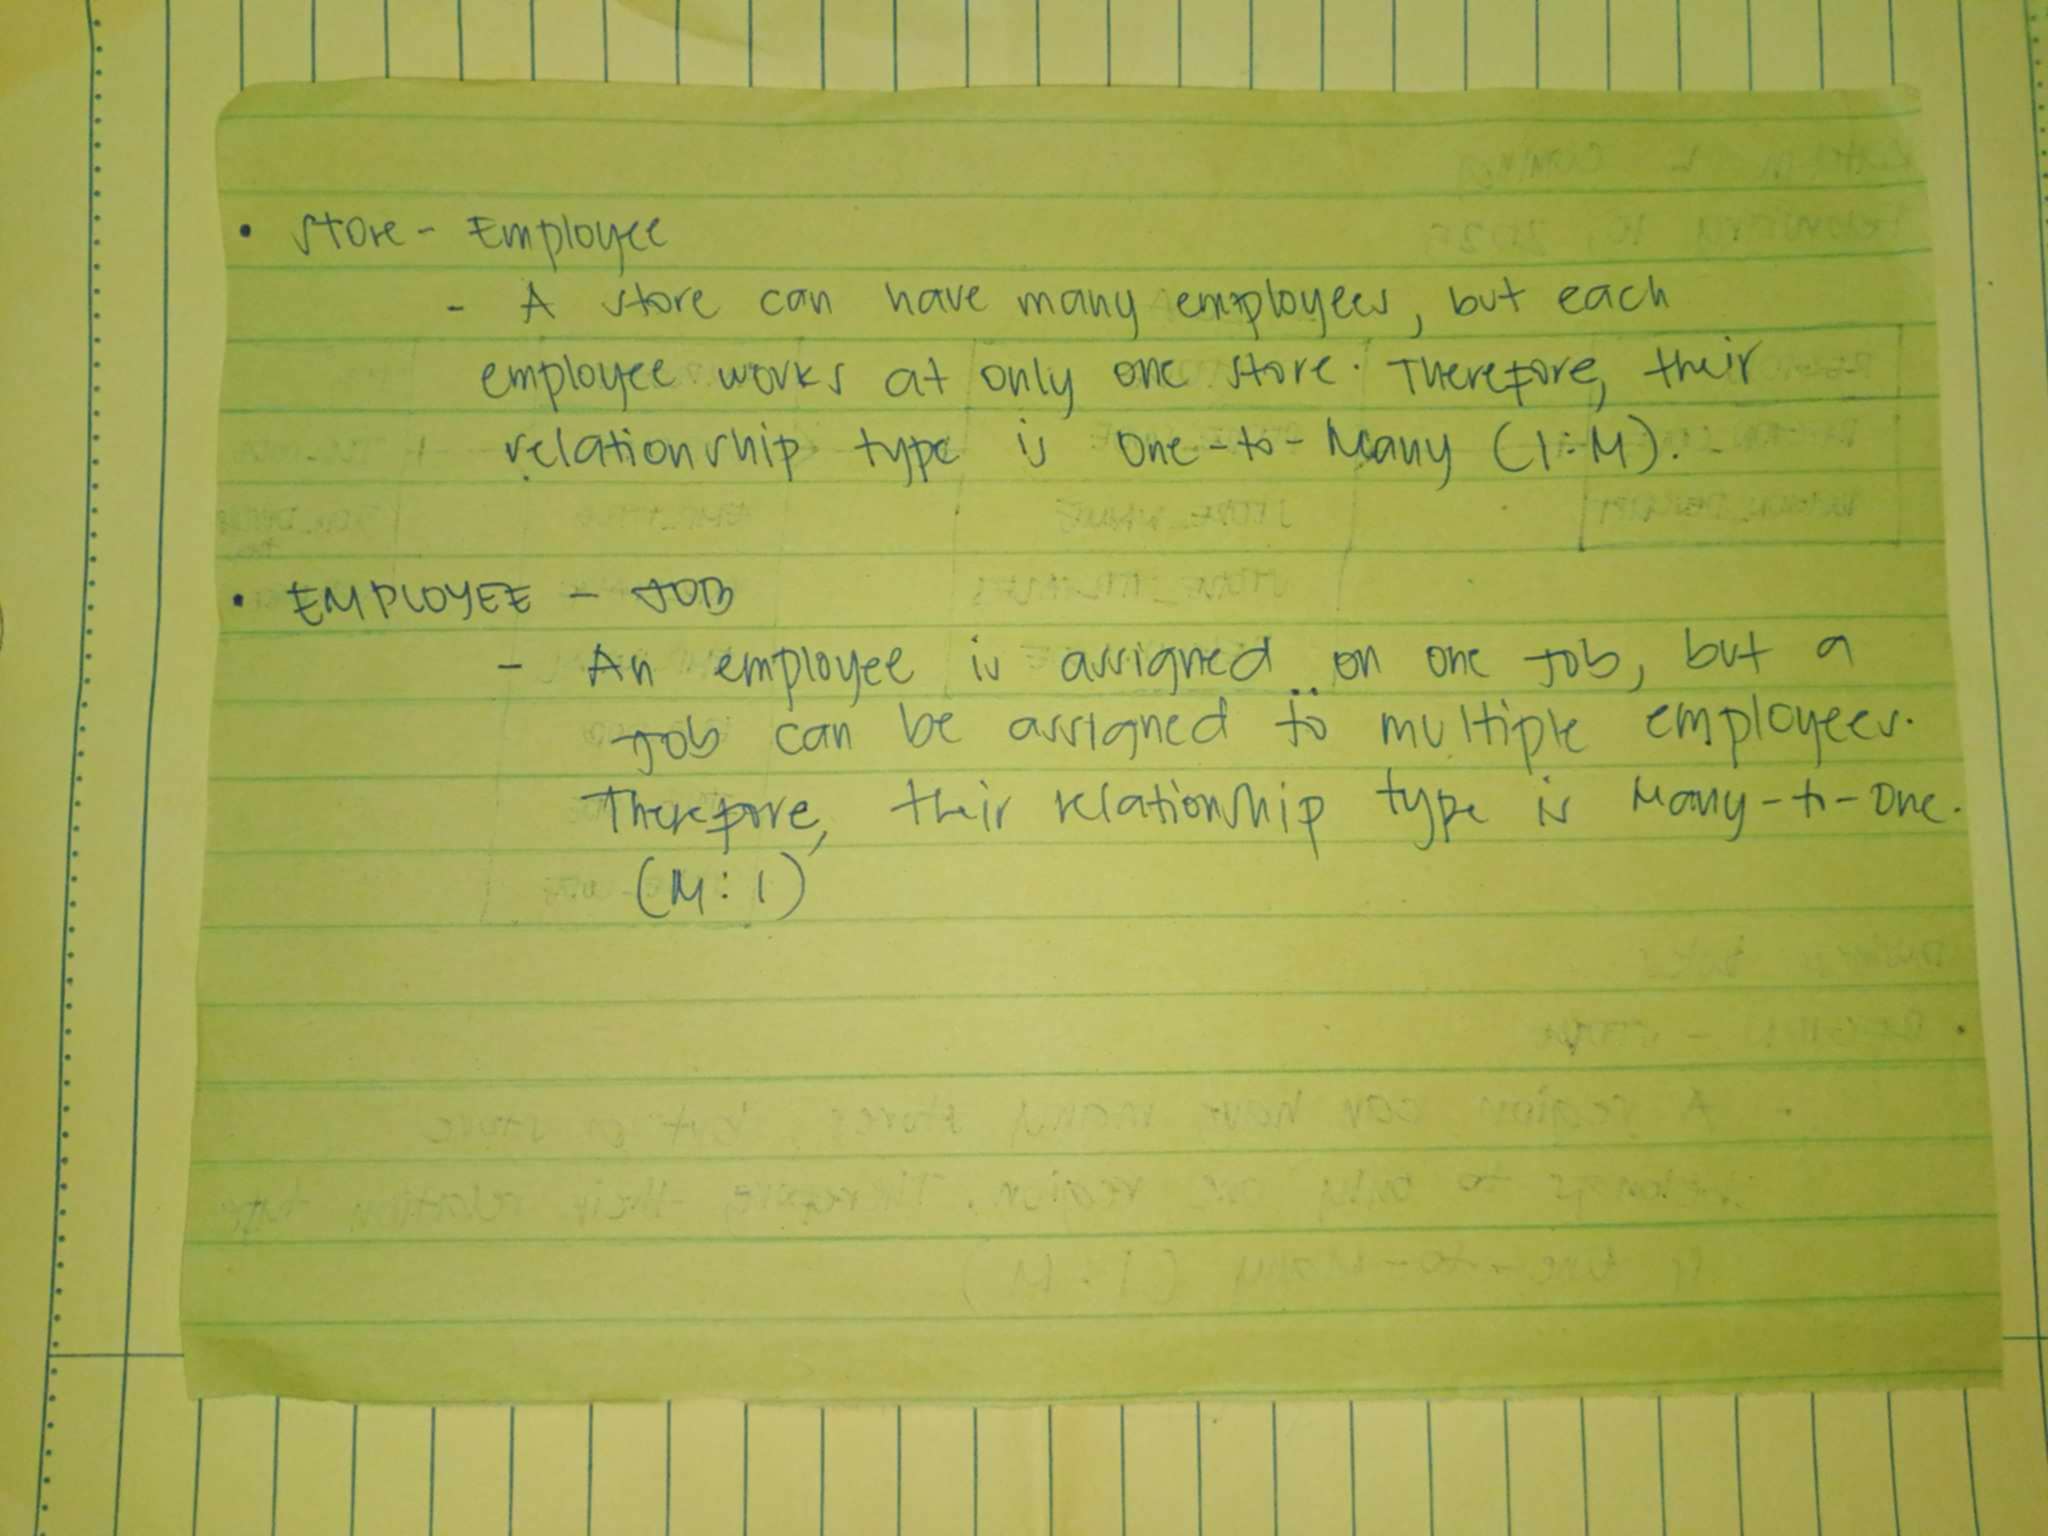 • Store - Employee
- A store can have many employees, but each
employee works at only one store. Therefore, their
relationship type is One-to-Many (1:M).
• EMPLOYEE - JOB
- An employee is assigned on one Job, but a
Job can be assigned to multiple employees.
Therefore, their relationship type is Many-to-One.
(M:1)